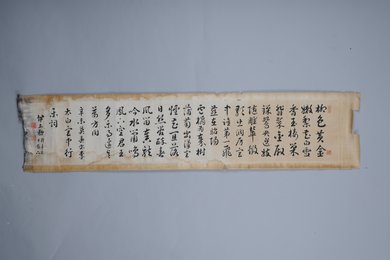 柳色黃金
嫩梨花白雪
香玉樓巢
翡翠金殿
鎖鴛鴦
隨雕輦徵
歌出洞房宮
中誰第一飛
燕在昭陽
盧橘為秦樹
蒲萄出漢宮
煙花宜落
日絲管醉春
風笛奏龍
吟水簫鳴
鳳下空君王
多樂事還與
萬方同
辛未書李
太白宮中行
樂詞